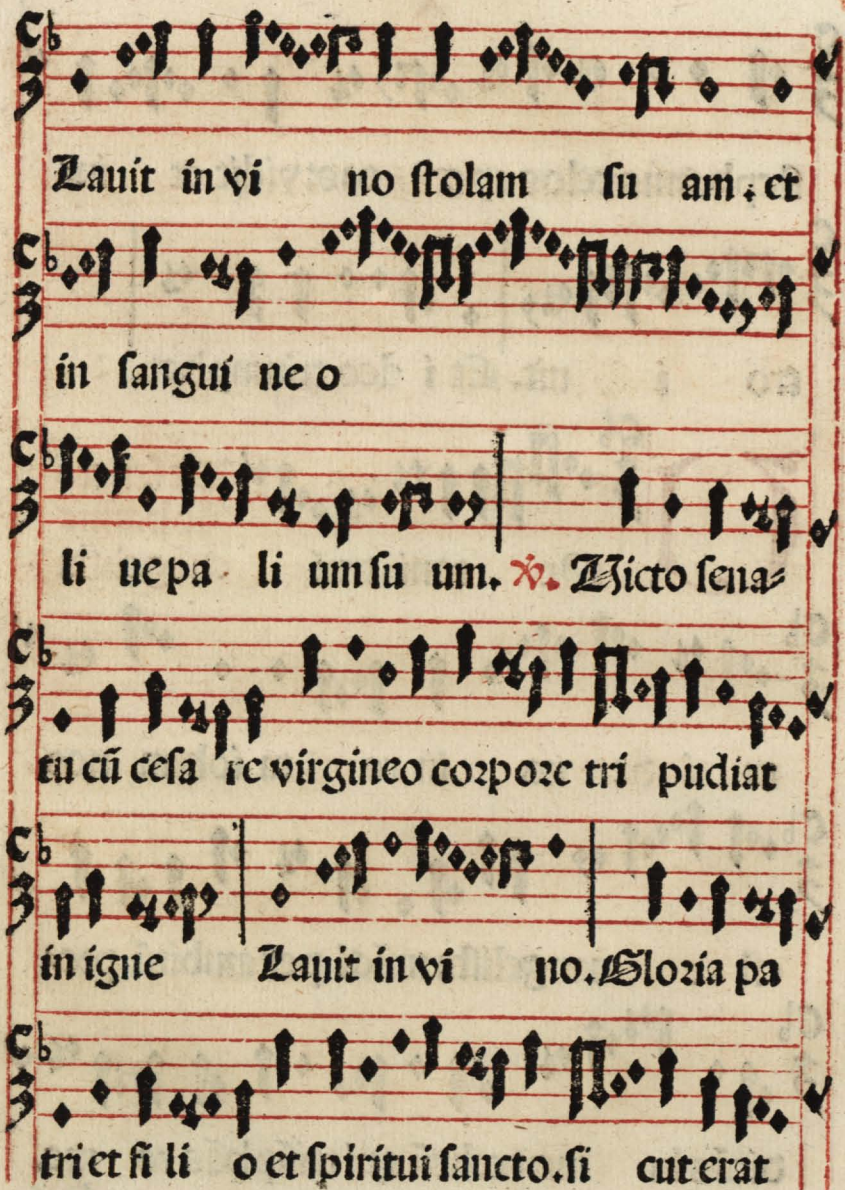 Lauit in vi no stolam su am. et
in sangui ne o
li ue pa li um su um. ℣. Uicto sena⸗
tu cũ cesa re virgineo corpore tri pudiat
in igne Lauit in vi no. Gloria pa
tri et fi li o et spiritui sancto. si cut erat